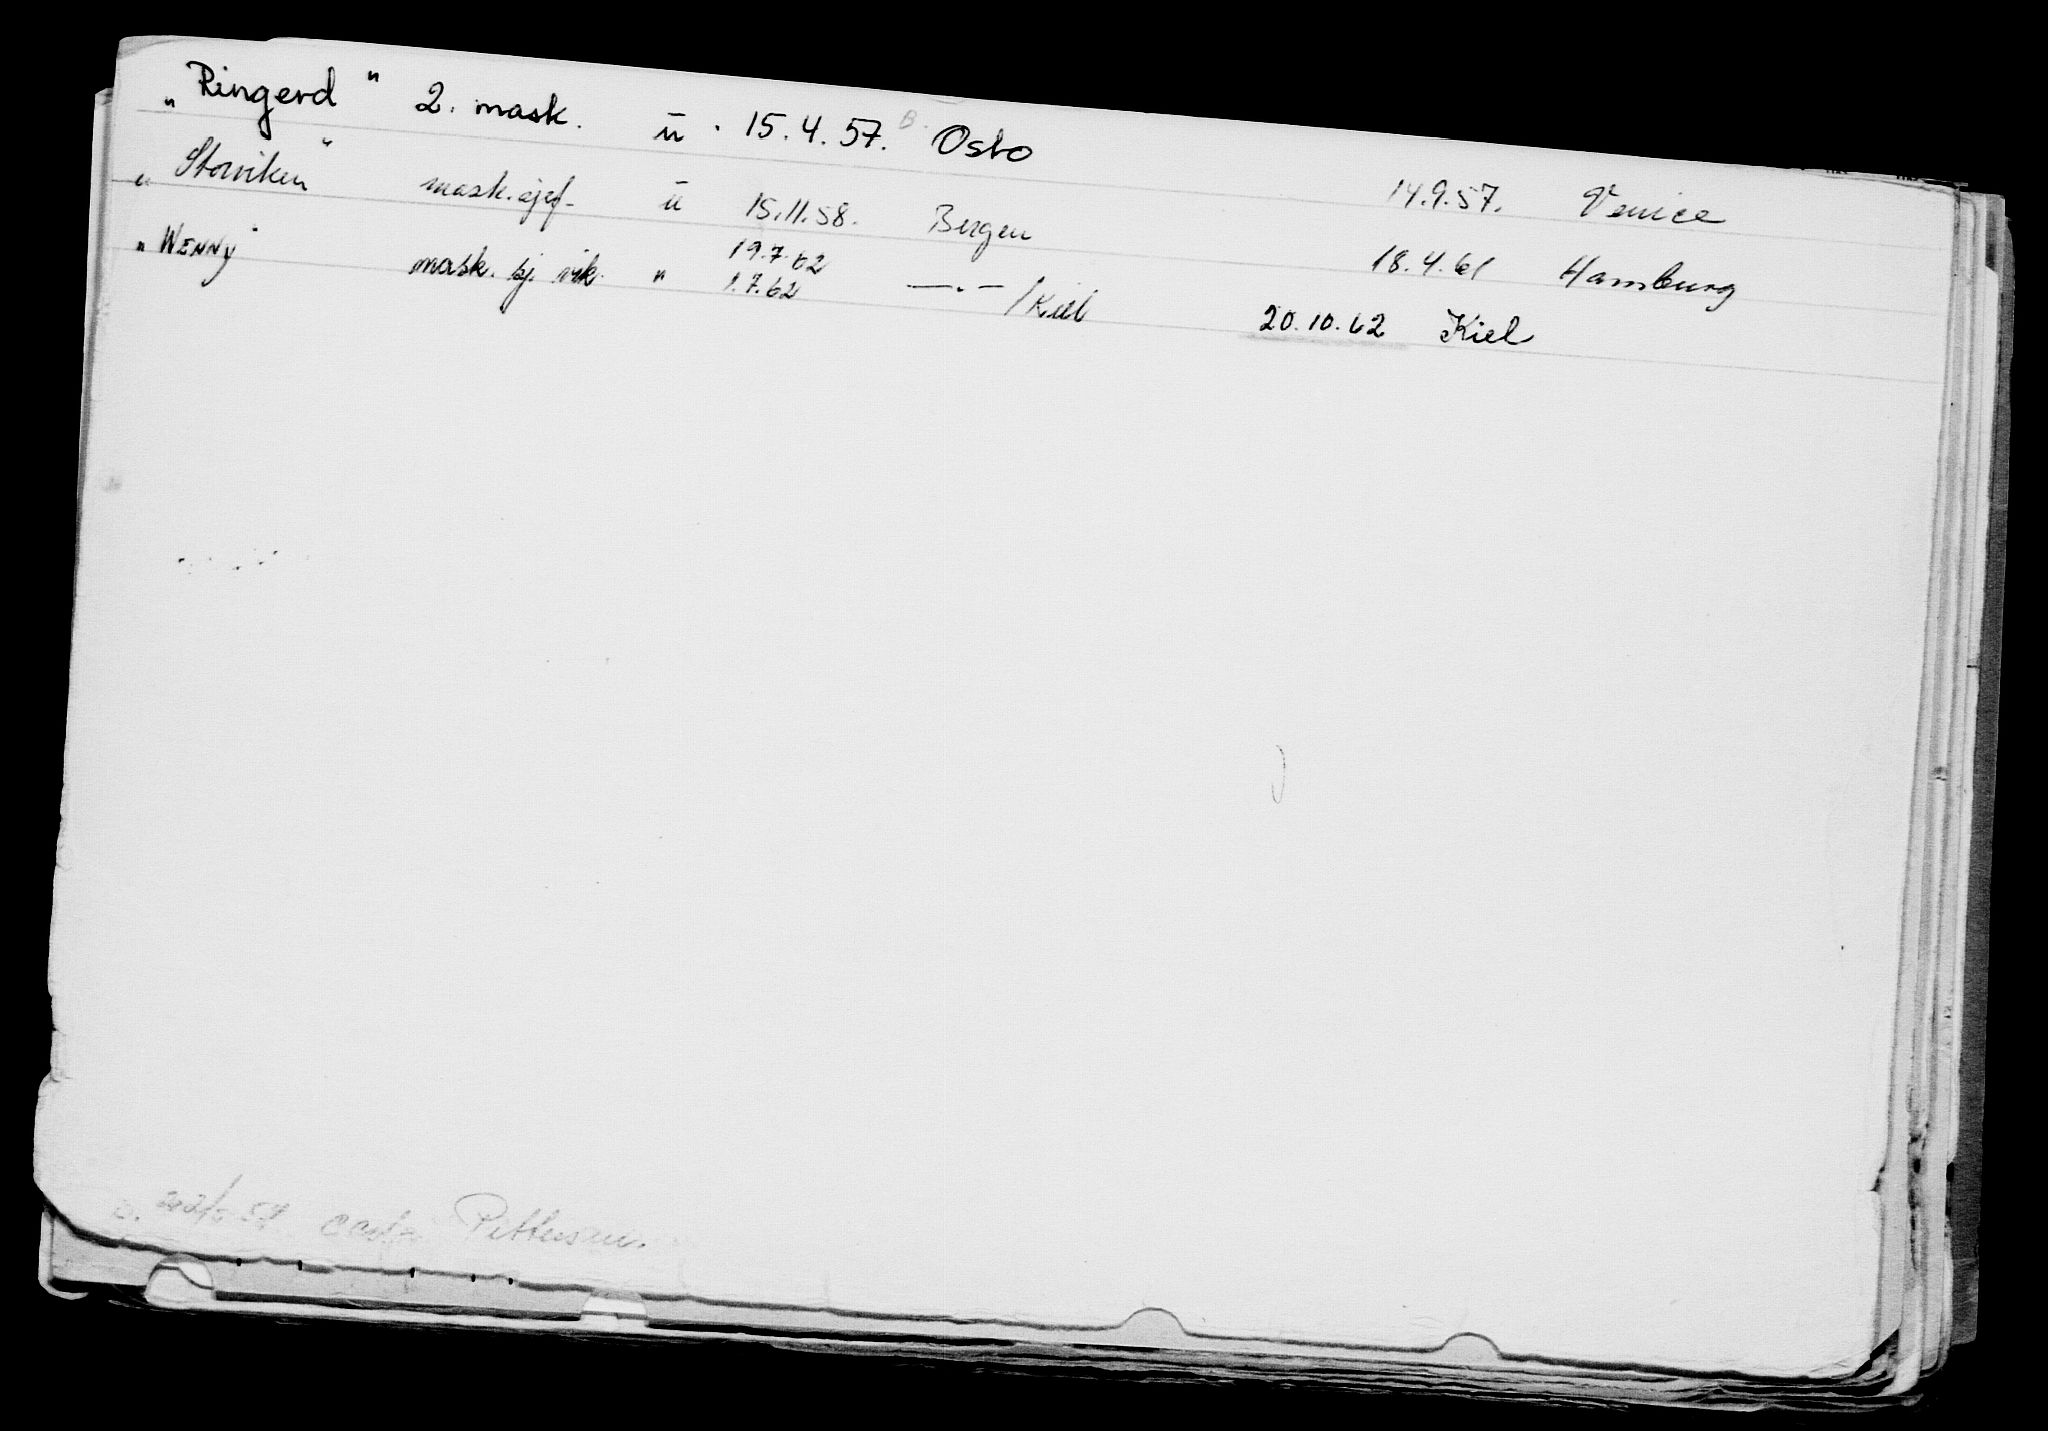 „Ringerd" 2. mask. u . 15.4.57. B. Oslo 14.9.57. Venice
„Storviken" mask.sjef. u 15.11.58. Bergen 18.4.61 Hamburg
„WENNY" mask. sj. vik. " 19.7.62 1.7.62 —.—/Kiel 20.10.62 Kiel
Pettersen.